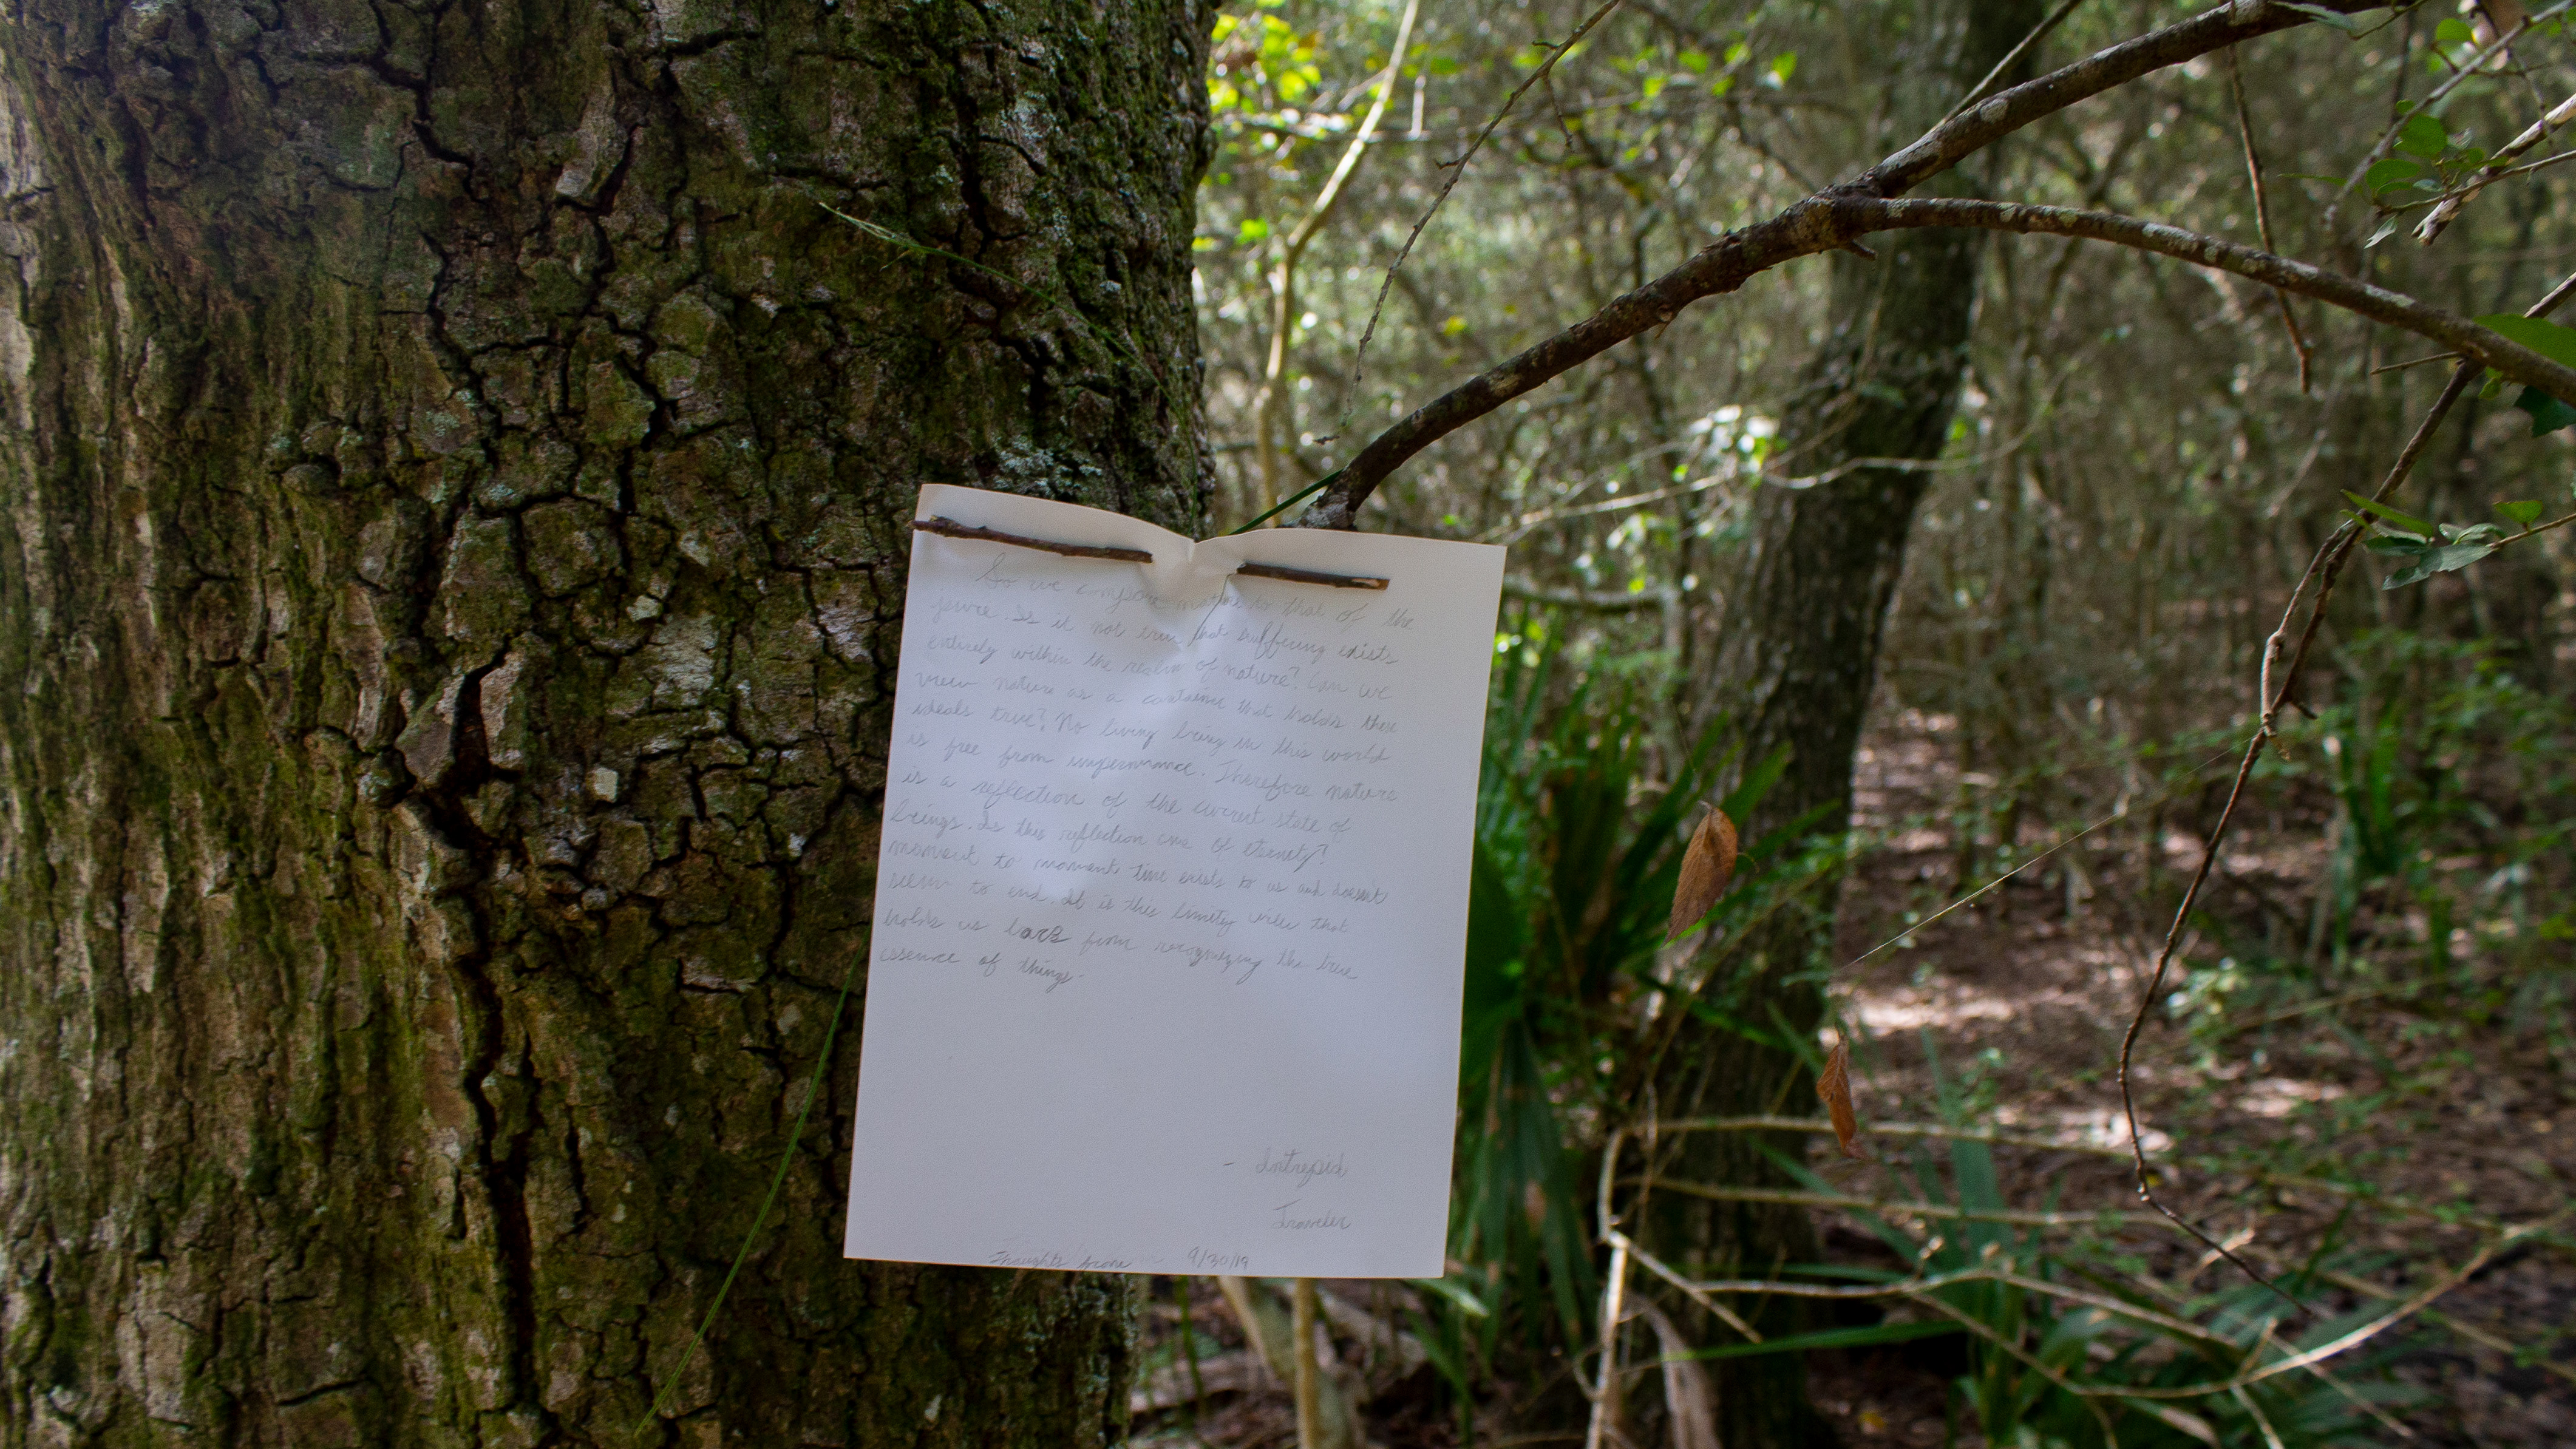 So we compare nature to that of the
. Is it not true that suffering exists
entirely within the realm of nature? Can we
view nature as a container that holds these
ideals true? No living being in this world
is free from impermance. Therefore nature
is a reflection of the current state of
beings. Is this reflection one of eternity?
moment to moment time exists to us and doesn't
seem to end. It is this view that
holds us back from recognizing the true
essence of things.
- Intrepid
Traveler
Thoughts 9/30/19